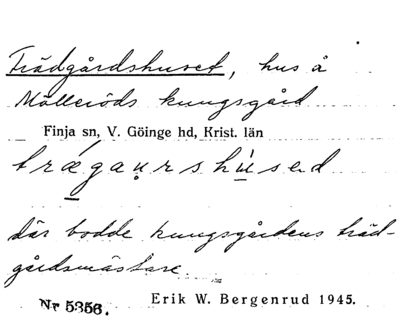 Trädgårdshuset, hus å
Mölleröds kungsgård
Finja sn, V. Göinge hd, Krist. län
trǽgau̥rshu̍sed
där bodde kungsgårdens träd-
gårdsmästare.
Nr 5356. Erik W. Bergenrud 1945.